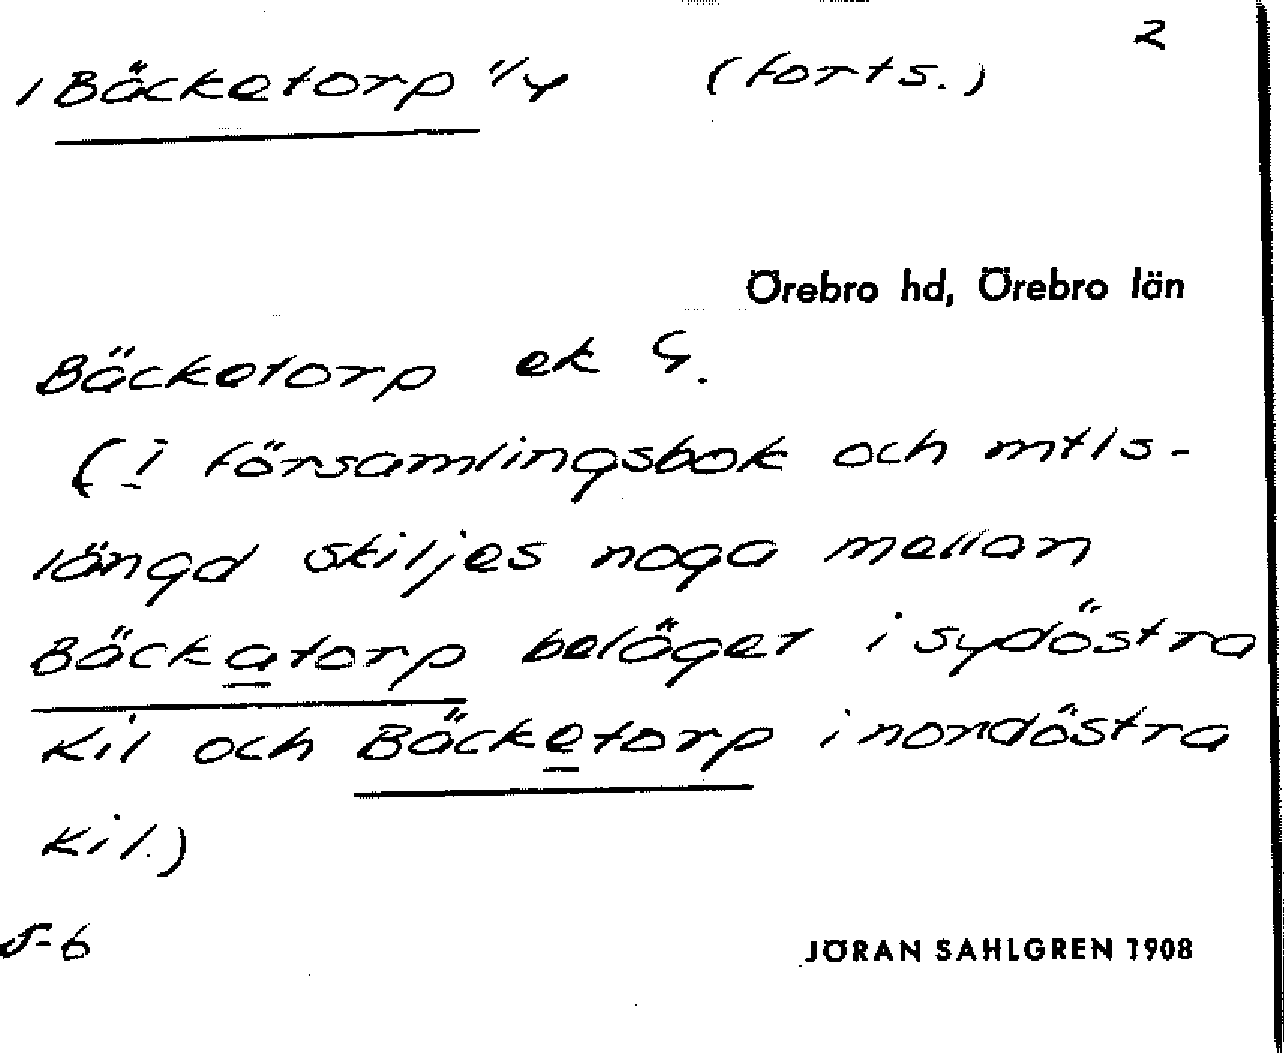 2
1 Bäcketorp 1/4 (forts.)
Örebro hd, Örebro län
Bäcketorp ek G.
(I församlingsbok och mtls-
längd skiljes noga mellan
Bäckatorp beläget i sydöstra
Kil och Bäcketorp i nordöstra
Kil.)
5-6
JÖRAN SAHLGREN 1908